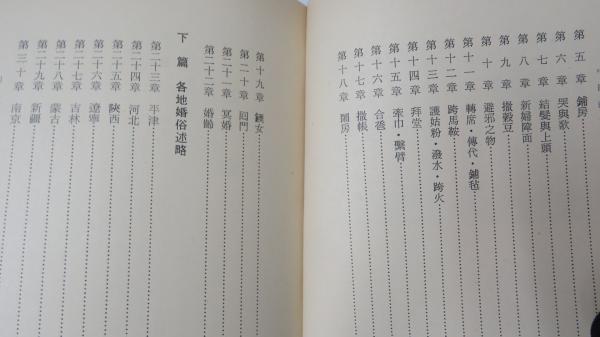 第五章 鋪房
第六章 哭與歌
第七章 結髮與上頭
第八章 新婦障面
第九章 撒穀豆
第十章 避邪之物
第十一章 轉席・傳代・鋪毡
第十二章 跨馬鞍
第十三章 護姑粉・潑水・跨火
第十四章 拜堂
第十五章 牽巾・繫臂
第十六章 合卺
第十七章 撒帳
第十八章 鬧房
第十九章 餪女
第二十章 回門
第二十一章 冥婚
第二十二章 婚齡
下篇 各地婚俗述略
第二十三章 平津
第二十四章 河北
第二十五章 陝西
第二十六章 遼寧
第二十七章 吉林
第二十八章 蒙古
第二十九章 新疆
第三十章 南京